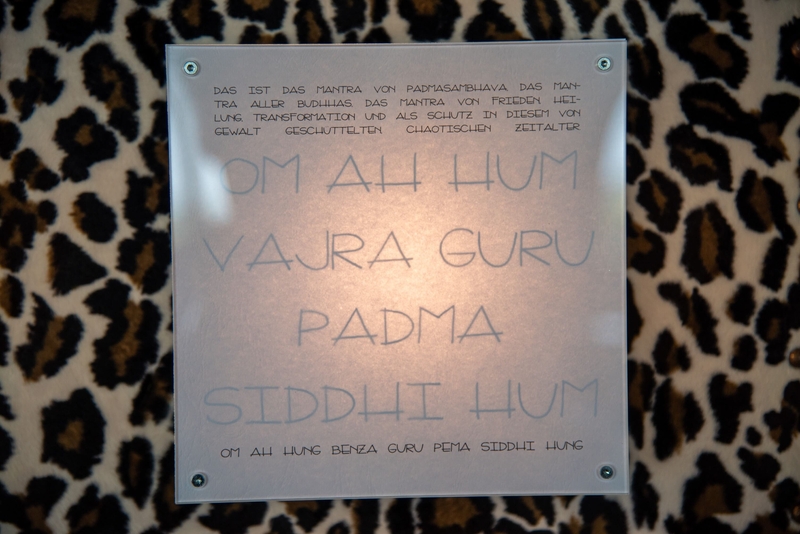 DAS IST DAS MANTRA VON PADMASAMBHAVA. DAS MAN-
TRA ALLER BUDHHAS. DAS MANTRA VON FRIEDEN, HEI-
LUNG, TRANSFORMATION UND ALS SCHUTZ IN DIESEM VON
GEWALT GESCHÜTTELTEN, CHAOTISCHEN ZEITALTER
OM AH HUM
VAJRA GURU
PADMA
SIDDHI HUM
OM AH HUNG BENZA GURU PEMA SIDDHI HUNG